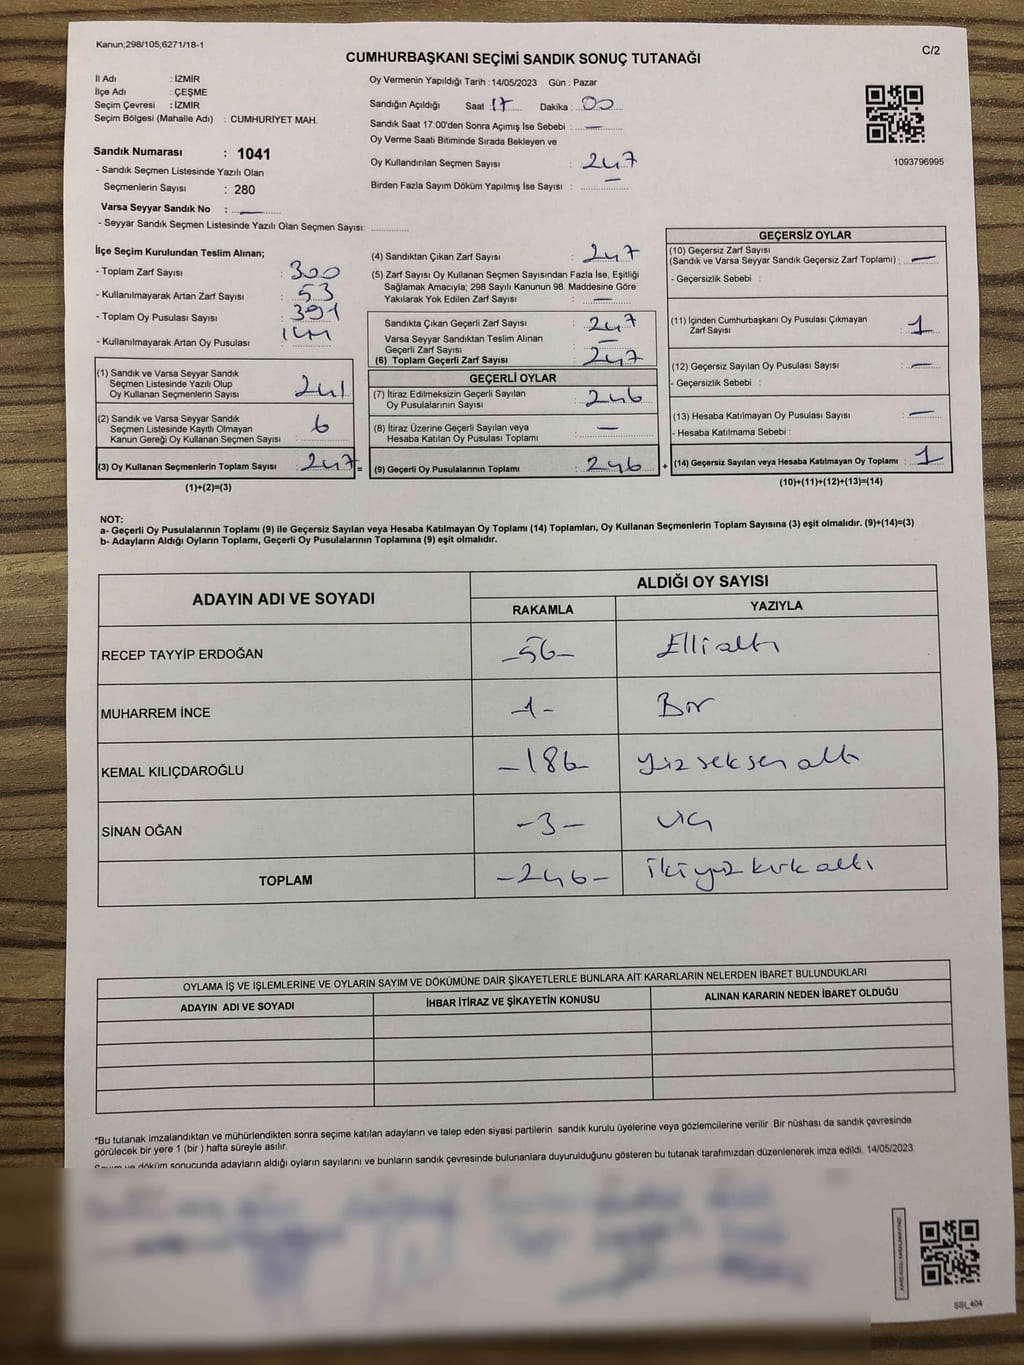 Kanun;298/105;6271/18-1
C/2
CUMHURBAŞKANI SEÇİMİ SANDIK SONUÇ TUTANAĞI
İl Adı : İZMİR
İlçe Adı : ÇEŞME
Seçim Çevresi : İZMİR
Seçim Bölgesi (Mahalle Adı) : CUMHURİYET MAH.
Sandık Numarası : 1041
- Sandık Seçmen Listesinde Yazılı Olan
Seçmenlerin Sayısı : 280
Varsa Seyyar Sandık No : —
- Seyyar Sandık Seçmen Listesinde Yazılı Olan Seçmen Sayısı:
Oy Vermenin Yapıldığı Tarih : 14/05/2023 Gün : Pazar
Sandığın Açıldığı Saat 17 Dakika : 00
Sandık Saat 17:00'den Sonra Açımış İse Sebebi : —
Oy Verme Saati Bitiminde Sırada Bekleyen ve
Oy Kullandırılan Seçmen Sayısı : 247
Birden Fazla Sayım Döküm Yapılmış İse Sayısı : —
1093796995
İlçe Seçim Kurulundan Teslim Alınan;
- Toplam Zarf Sayısı : 300
- Kullanılmayarak Artan Zarf Sayısı : 53
- Toplam Oy Pusulası Sayısı : 391
- Kullanılmayarak Artan Oy Pusulası : 144
(1) Sandık ve Varsa Seyyar Sandık
Seçmen Listesinde Yazılı Olup
Oy Kullanan Seçmenlerin Sayısı : 241
(2) Sandık ve Varsa Seyyar Sandık
Seçmen Listesinde Kayıtlı Olmayan
Kanun Gereği Oy Kullanan Seçmen Sayısı : 6
(3) Oy Kullanan Seçmenlerin Toplam Sayısı : 247 =
(1)+(2)=(3)
(4) Sandıktan Çıkan Zarf Sayısı : 247
(5) Zarf Sayısı Oy Kullanan Seçmen Sayısından Fazla İse, Eşitliği
Sağlamak Amacıyla; 298 Sayılı Kanunun 98. Maddesine Göre
Yakılarak Yok Edilen Zarf Sayısı : —
Sandıkta Çıkan Geçerli Zarf Sayısı : 247
Varsa Seyyar Sandıktan Teslim Alınan
Geçerli Zarf Sayısı : —
(6) Toplam Geçerli Zarf Sayısı : 247
GEÇERLİ OYLAR
(7) İtiraz Edilmeksizin Geçerli Sayılan
Oy Pusulalarının Sayısı : 246
(8) İtiraz Üzerine Geçerli Sayılan veya
Hesaba Katılan Oy Pusulası Toplamı : —
(9) Geçerli Oy Pusulalarının Toplamı : 246 +
GEÇERSİZ OYLAR
(10) Geçersiz Zarf Sayısı
(Sandık ve Varsa Seyyar Sandık Geçersiz Zarf Toplamı) : —
- Geçersizlik Sebebi :
(11) İçinden Cumhurbaşkanı Oy Pusulası Çıkmayan
Zarf Sayısı : 1
(12) Geçersiz Sayılan Oy Pusulası Sayısı : —
- Geçersizlik Sebebi :
(13) Hesaba Katılmayan Oy Pusulası Sayısı : —
- Hesaba Katılmama Sebebi :
(14) Geçersiz Sayılan veya Hesaba Katılmayan Oy Toplamı : 1
(10)+(11)+(12)+(13)=(14)
NOT:
a- Geçerli Oy Pusulalarının Toplamı (9) ile Geçersiz Sayılan veya Hesaba Katılmayan Oy Toplamı (14) Toplamları, Oy Kullanan Seçmenlerin Toplam Sayısına (3) eşit olmalıdır. (9)+(14)=(3)
b- Adayların Aldığı Oyların Toplamı, Geçerli Oy Pusulalarının Toplamına (9) eşit olmalıdır.
ADAYIN ADI VE SOYADI ALDIĞI OY SAYISI
RAKAMLA YAZIYLA
RECEP TAYYİP ERDOĞAN -56- Elli altı
MUHARREM İNCE -1- Bir
KEMAL KILIÇDAROĞLU -186- yüz seksen altı
SİNAN OĞAN -3- üç
TOPLAM -246- iki yüz kırk altı
OYLAMA İŞ VE İŞLEMLERİNE VE OYLARIN SAYIM VE DÖKÜMÜNE DAİR ŞİKAYETLERLE BUNLARA AİT KARARLARIN NELERDEN İBARET BULUNDUKLARI
ADAYIN ADI VE SOYADI İHBAR İTİRAZ VE ŞİKAYETİN KONUSU ALINAN KARARIN NEDEN İBARET OLDUĞU
*Bu tutanak imzalandıktan ve mühürlendikten sonra seçime katılan adayların ve talep eden siyasi partilerin sandık kurulu üyelerine veya gözlemcilerine verilir .Bir nüshası da sandık çevresinde
görülecek bir yere 1 (bir ) hafta süreyle asılır.
Sayım ve döküm sonucunda adayların aldığı oyların sayılarını ve bunların sandık çevresinde bulunanlara duyurulduğunu gösteren bu tutanak tarafımızdan düzenlenerek imza edildi. 14/05/2023
SSI_404